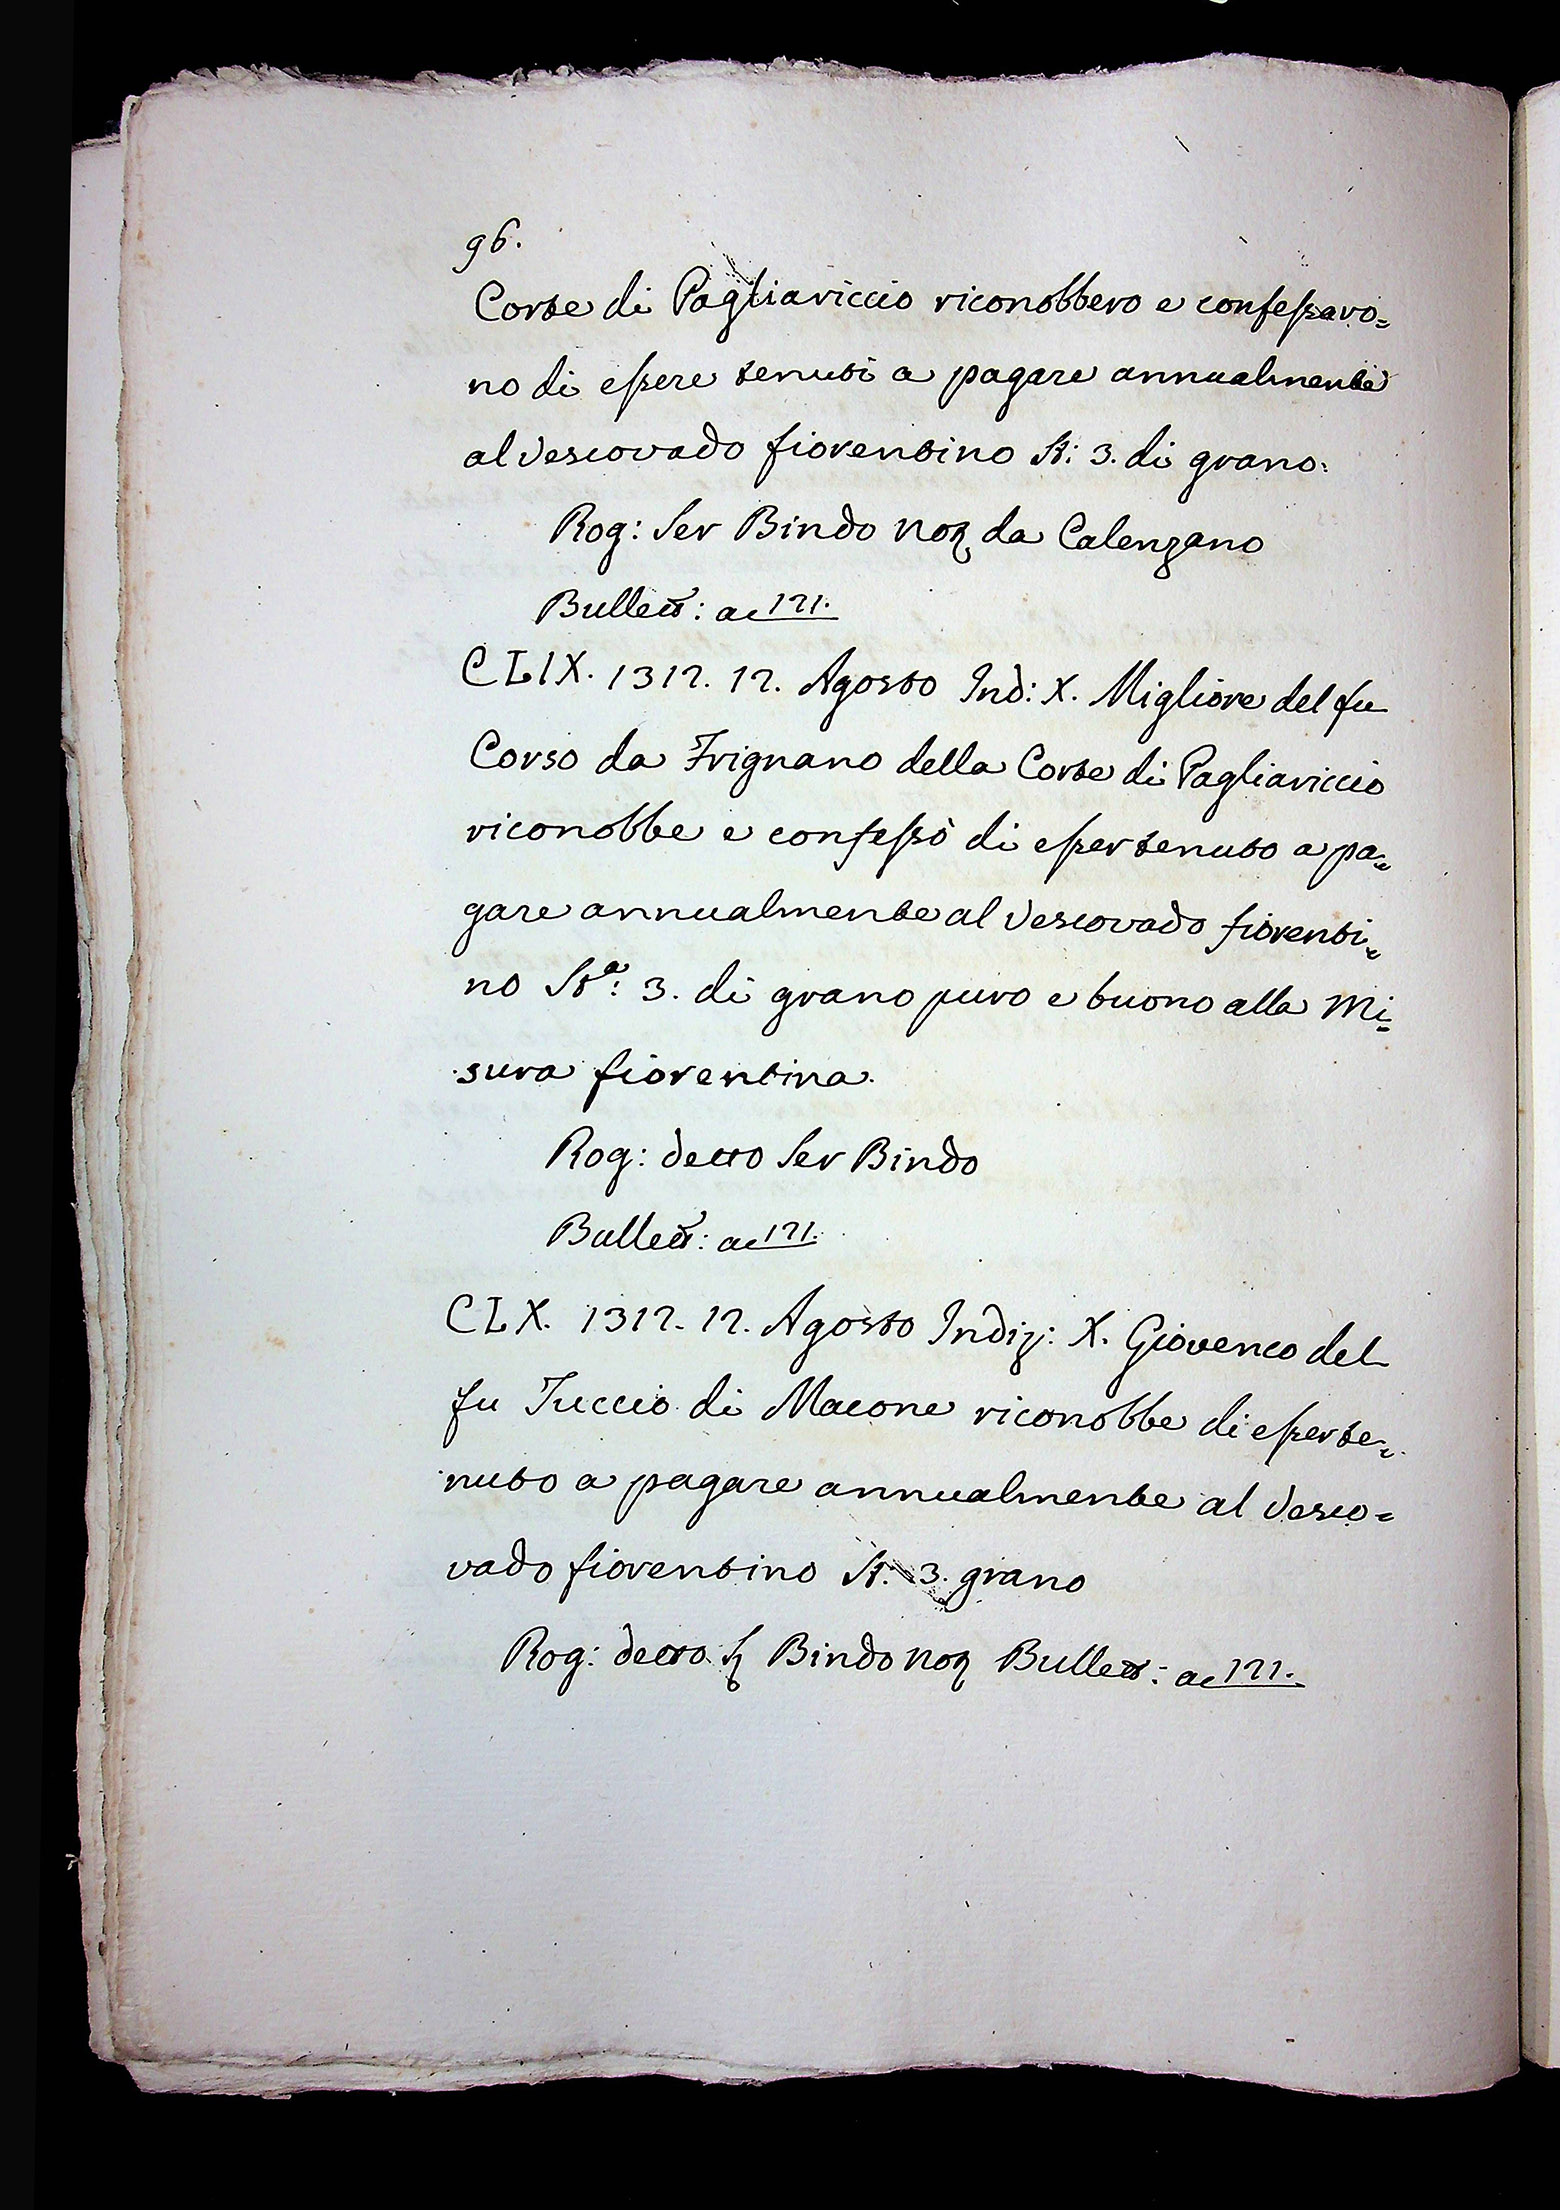 96.
Corte di Pagliariccio riconobbero e confessaro=
no di essere tenuti a pagare annualmente
al Vescovado fiorentino St: 3. di grano.
Rog: Ser Bindo Not da Calenzano
Bullett: ac 121.
CLIX. 1312. 12. Agosto Ind: X. Migliore del fu
Corso da Frignano della Corte di Pagliariccio
riconobbe e confessò di esser tenuto a pa=
gare annualmente al Vescovado fiorenti=
no Sta: 3. di grano puro e buono alla Mi=
sura fiorentina.
Rog: detto Ser Bindo
Bullett: ac 121.
CLX. 1312. 12. Agosto Indiz: X. Giovenco del
fu Tuccio di Macone riconobbe di esser te=
nuto a pagare annualmente al Vesco=
vado fiorentino St. 3. grano
Rog: detto S Bindo Not Bullett: ac 121.